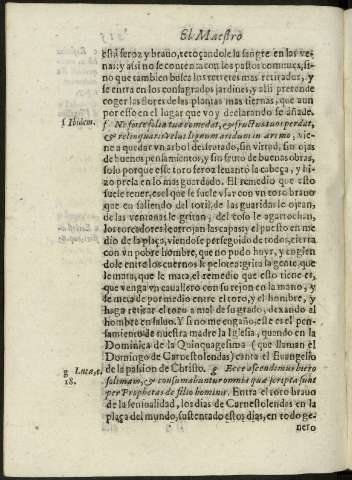 El Maestro
està feroz y brauo, retoçandole la sangre en las ve-
nas: y assi no se contenta con los pastos comunes, si-
no que tambien busca los retretes mas retirados, y
se entra en los consagrados jardines, y assi pretende
coger las flores de las plantas mas tiernas, que aun
por esso en el lugar que voy declarando se añade.
f Ibidem.
f Ne forte folia tua comedat, & fructus tuos perdat,
& relinquaris velut lignum aridum in eremo, vie-
ne a quedar vn arbol desfrotado, sin virtud, sin ojas
de buenos pensamientos, y sin fruto de buenas obras,
solo porque esse toro feroz leuantò la cabeça, y hi-
zo presa en lo mas guardado. El remedio que esto
suele tener, es el que se suele vsar con vn toro brauo
que en saliendo del toril, de las guaridas le ojean,
de las ventanas le gritan, del coso le agarrochan,
los toreadores le arrojan las capas: y el puesto en me
dio de la plaça, viendose perseguido de todos, cierra
con vn pobre hombre, que no pudo huyr, y cogien
dole entre los cuernos le pelotea: grita la gente, que
le mata, que le mata, el remedio que esto tiene es,
que venga vn cauallero con su rejon en la mano, y
se meta de por medio entre el toro, y el hombre, y
haga retirar el toro a mal de su grado, dexando al
hombre en saluo. Y si no me engaño, este es el pen-
samiento de nuestra madre la Iglesia, quando en la
Dominica de la Quinquagesima (que llaman el
Domingo de Carnestolendas) canta el Euangelio
g Luca, c.
18.
de la passion de Christo. g Ecce ascendimus hiero
solimam, & consumabuntur omnia quæ scripta sunt
per Prophetas de filio hominis. Entra el toro brauo
de la sensualidad, los dias de Carnestolendas en la
plaça del mundo, sustentado estos dias, en todo ge-
nero